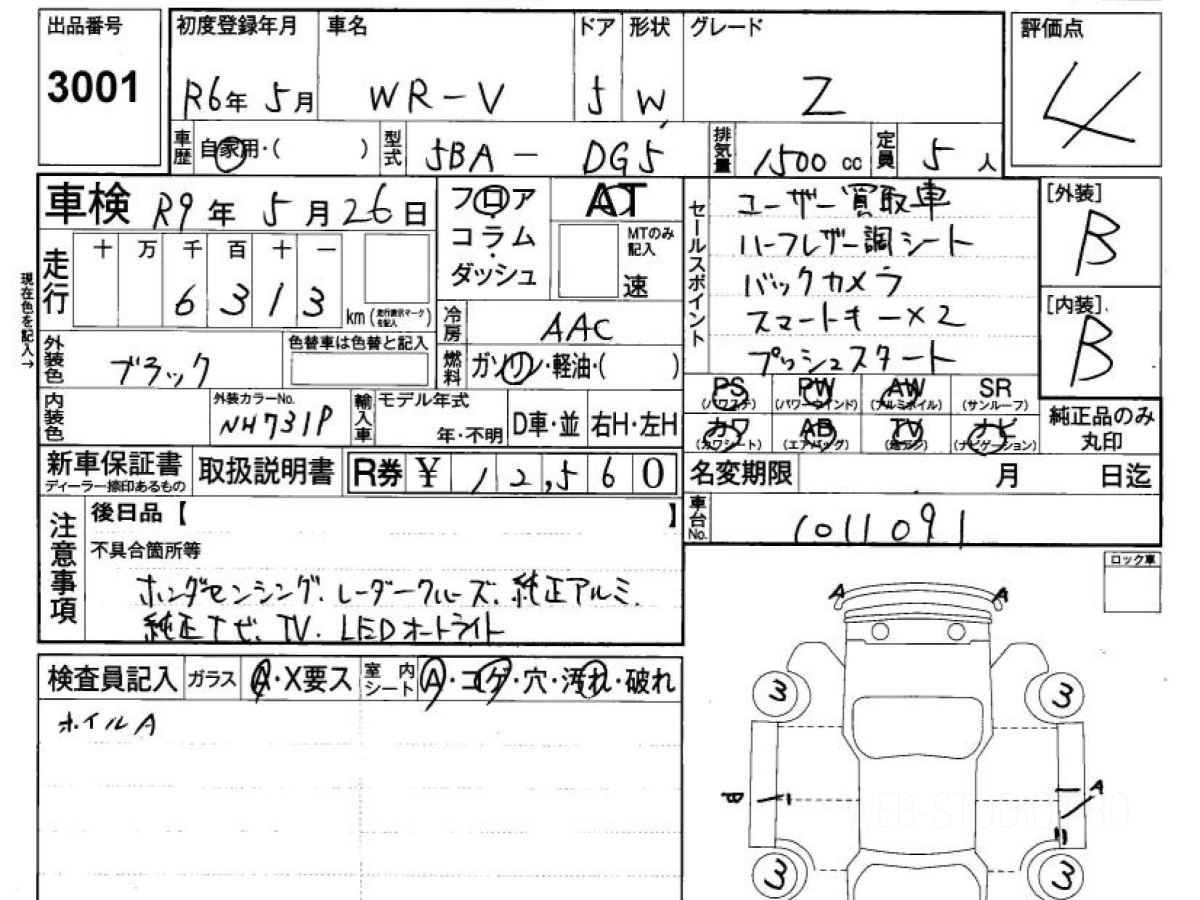 出品番号 初度登録年月 車名 ドア 形状 グレード 評価点
3001 R6年 5月 WR-V 5 W Z 4
車歴 自家用・( ) 型式 5BA - DG5 排気量 1500 cc 定員 5 人
車検 R9年 5月26日 フロア AT セールスポイント ユーザー買取車 [外装]
コラム MTのみ記入 ハーフレザー調シート B
走行 十 万 千 百 十 一 ダッシュ 速 バックカメラ
現在色を記入→ 6 3 1 3 km (走行表示マークを記入) 冷房 AAC スマートキー×2 [内装]
外装色 ブラック 色替車は色替と記入 燃料 ガソリン・軽油・( ) プッシュスタート B
PS (パワステ) PW (パワーウインド) AW (アルミホイル) SR (サンルーフ)
内装色 外装カラーNo. NH731P 輸入車 モデル年式 年・不明 D車・並 右H・左H
カワ (カワシート) AB (エアバッグ) TV ナビ (ナビゲーション) 純正品のみ丸印
新車保証書 ディーラー捺印あるもの 取扱説明書 R券 ¥ 12,560 名変期限 月 日迄
注意事項 後日品【 】 車台No. 1011091
不具合箇所等 ロック車
ホンダセンシング. レーダークルーズ. 純正アルミ.
純正ナビ. TV. LEDオートライト
A A
検査員記入 ガラス A・X要ス 室内シート A・コゲ・穴・汚れ・破れ
ホイルA
3 3
B A
WEB-STUDIO.PRO
3 3